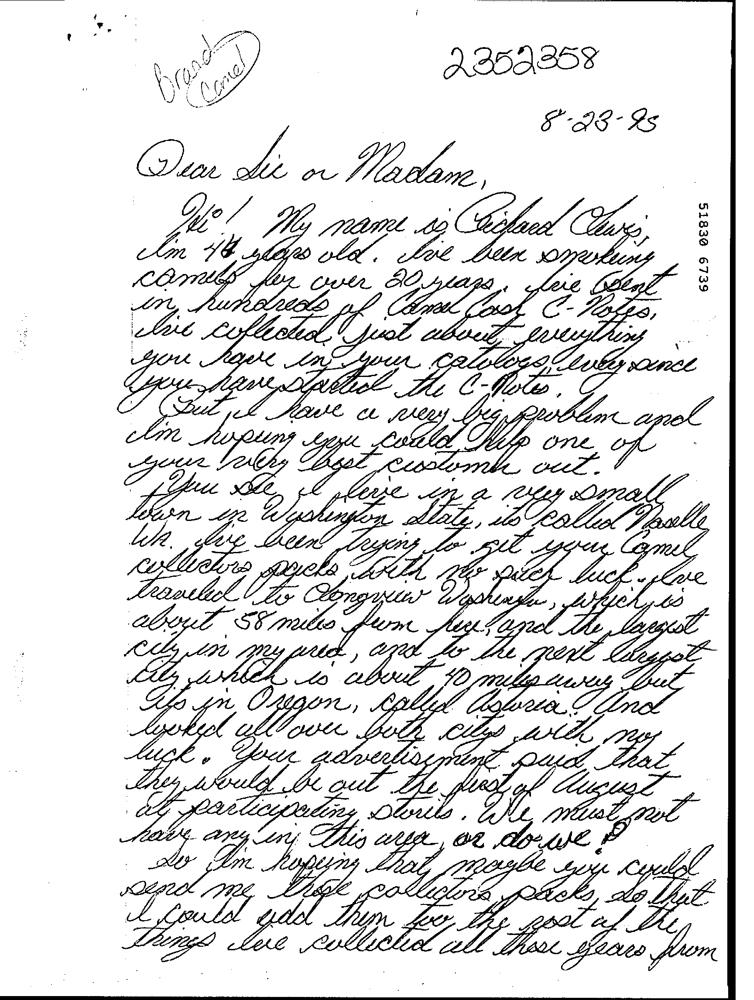 Brand
Camel
2352358
8-23-95
Dear Sir or Madam,
Hi! My name is Richard
I'm 44 years old. I've been smoking
camels for over 20 years. I've sent
in hundreds of Camel Cash C-Notes.
I've collected just about everything
you have in your catologs, every since
you have started the C-Notes.
But I have a very big problem and
I'm hopeing you could help one of
your very best customer out.
You see I live in a very small
town in Washington State, its called Naselle
WA. I've been trying to get your Camel
collectors packs with no such luck. I've
traveled to Longview Washington, which is
about 58 miles from here, and the largest
city in my area, and to the next largest
city which is about 40 miles away but
its in Oregon, called Astoria. And
looked all over both citys with no
luck. Your advertisement said that
they would be out the first of August
at participating stores. We must not
have any in this area, or do we?
So I'm hopeing that maybe you could
send me those collectors packs, so that
I could add them too the rest of the
things I've collected all these years from
51830 6739